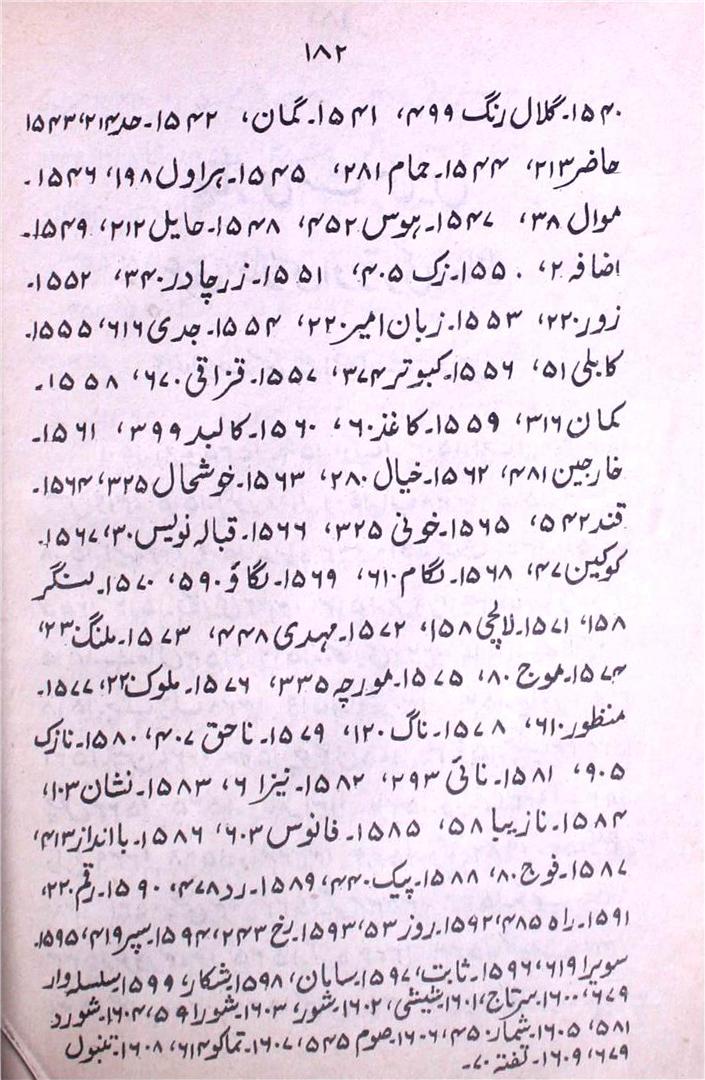 ۱۸۲
۱۵۴۰۔گلال رنگ ۴۹۹، ۱۵۴۱۔گمان، ۱۵۴۲۔حد۲۱۴، ۱۵۴۳
حاضر۲۱۳، ۱۵۴۴۔حمام ۲۸۱، ۱۵۴۵۔ہراول ۱۹۸، ۱۵۴۶۔
موال ۳۸، ۱۵۴۷۔ہوس ۴۵۲، ۱۵۴۸۔حایل ۲۱۲، ۱۵۴۹۔
اضافہ ۲، ۱۵۵۰۔زک ۴۰۵، ۱۵۵۱۔زرچادر ۳۴۰، ۱۵۵۲۔
زور۲۲۰، ۱۵۵۳۔زبان امیر۲۲۰، ۱۵۵۴۔جدی ۶۱۶، ۱۵۵۵۔
کابلی ۵۱، ۱۵۵۶۔کبوتر ۳۷۴، ۱۵۵۷۔قزاقی ۶۷۰، ۱۵۵۸۔
کمان ۳۱۶، ۱۵۵۹۔کاغذ ۶۰، ۱۵۶۰۔کالبد ۳۹۹، ۱۵۶۱۔
خارجین ۴۸۱، ۱۵۶۲۔خیال ۲۸۰، ۱۵۶۳۔خوشحال ۳۲۵، ۱۵۶۴۔
قند ۵۴۲، ۱۵۶۵۔خونی ۳۲۵، ۱۵۶۶۔قبالہ نویس ۳۰، ۱۵۶۷۔
کوکین ۴۷، ۱۵۶۸۔لگام ۶۱۰، ۱۵۶۹۔لگاؤ ۵۹۰، ۱۵۷۰۔لنگر
۱۵۸، ۱۵۷۱۔لالچی ۱۵۸، ۱۵۷۲۔مہدی ۴۴۸، ۱۵۷۳۔ملنگ ۲۳،
۱۵۷۴۔موج ۸۰، ۱۵۷۵۔مورچہ ۳۳۵، ۱۵۷۶۔ملوک ۲۲، ۱۵۷۷۔
منظور ۶۱۰، ۱۵۷۸۔ناگ ۱۲۰، ۱۵۷۹۔ناحق ۴۰۷، ۱۵۸۰۔نازک
۹۰۵، ۱۵۸۱۔نائی ۲۹۳، ۱۵۸۲۔نیزا ۶، ۱۵۸۳۔نشان ۱۰۳،
۱۵۸۴۔نازیبا ۵۸، ۱۵۸۵۔فانوس ۶۰۳، ۱۵۸۶۔باانداز ۴۱۳،
۱۵۸۷۔فوج ۸۰، ۱۵۸۸۔پیک ۴۴۰، ۱۵۸۹۔رد ۴۷۸، ۱۵۹۰۔رقم ۲۲۰،
۱۵۹۱۔راہ ۴۸۵، ۱۵۹۲۔روز ۵۳، ۱۵۹۳۔رخ ۲۴۳، ۱۵۹۴۔سپر ۴۱۹، ۱۵۹۵۔
سویرا ۶۱۹، ۱۵۹۶۔ثابت، ۱۵۹۷۔سابان، ۱۵۹۸۔شکار، ۱۵۹۹۔سلسلہ وار
۶۷۹، ۱۶۰۰۔سرتاج، ۱۶۰۱۔شیشی، ۱۶۰۲۔شور، ۱۶۰۳۔شورا ۵۹، ۱۶۰۴۔شورد
۵۸۱، ۱۶۰۵۔شمار ۴۵۰، ۱۶۰۶۔صوم ۵۴۵، ۱۶۰۷۔تماکو ۶۱۴، ۱۶۰۸۔تنبول
۶۷۹، ۱۶۰۹۔تفتہ ۷۰۔